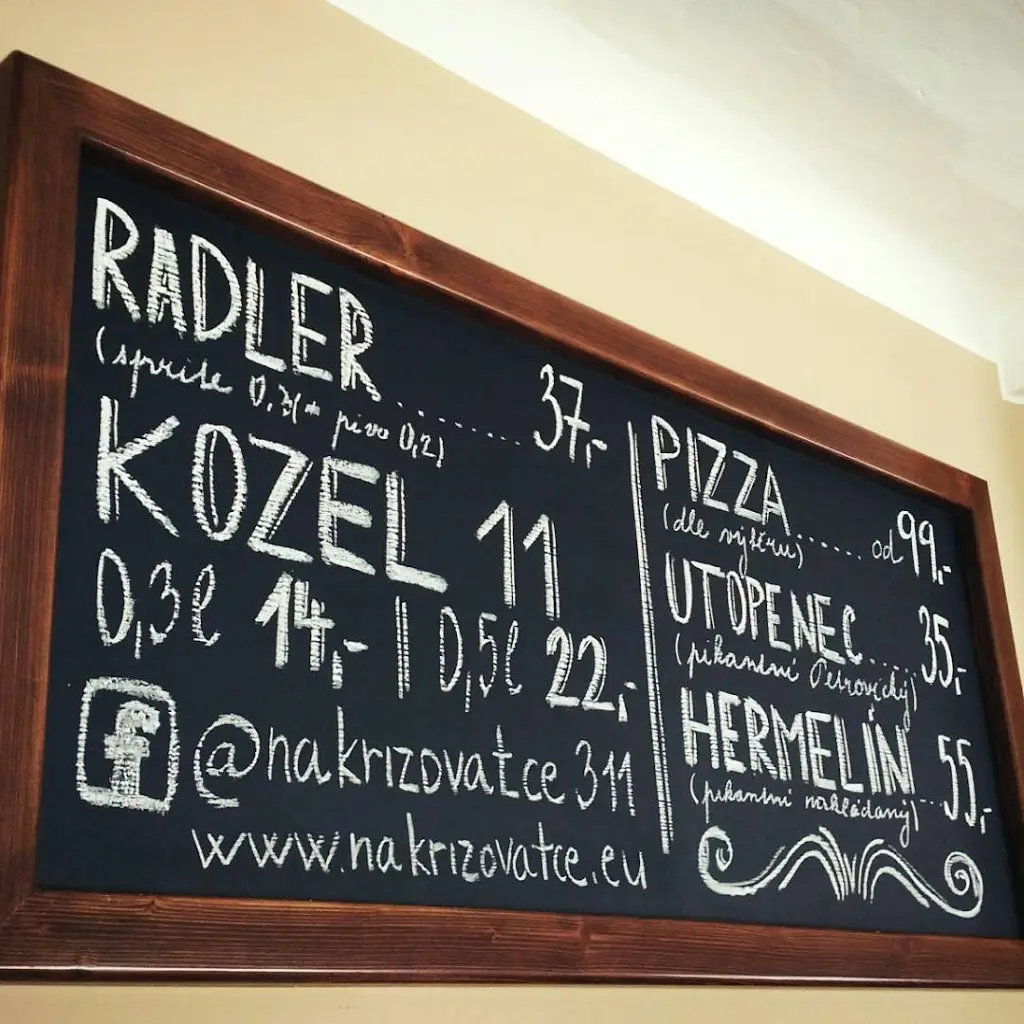 RADLER ........ 37,-
(sprite 0,3l + pivo 0,2)
KOZEL 11
0,3l 14,- | 0,5l 22,-
f @nakrizovatce311
www.nakrizovatce.eu
PIZZA ...... od 99.-
(dle výběru)
UTOPENEC .... 35,-
(pikantní Petrovický)
HERMELÍN ... 55,-
(pikantní nakládaný)